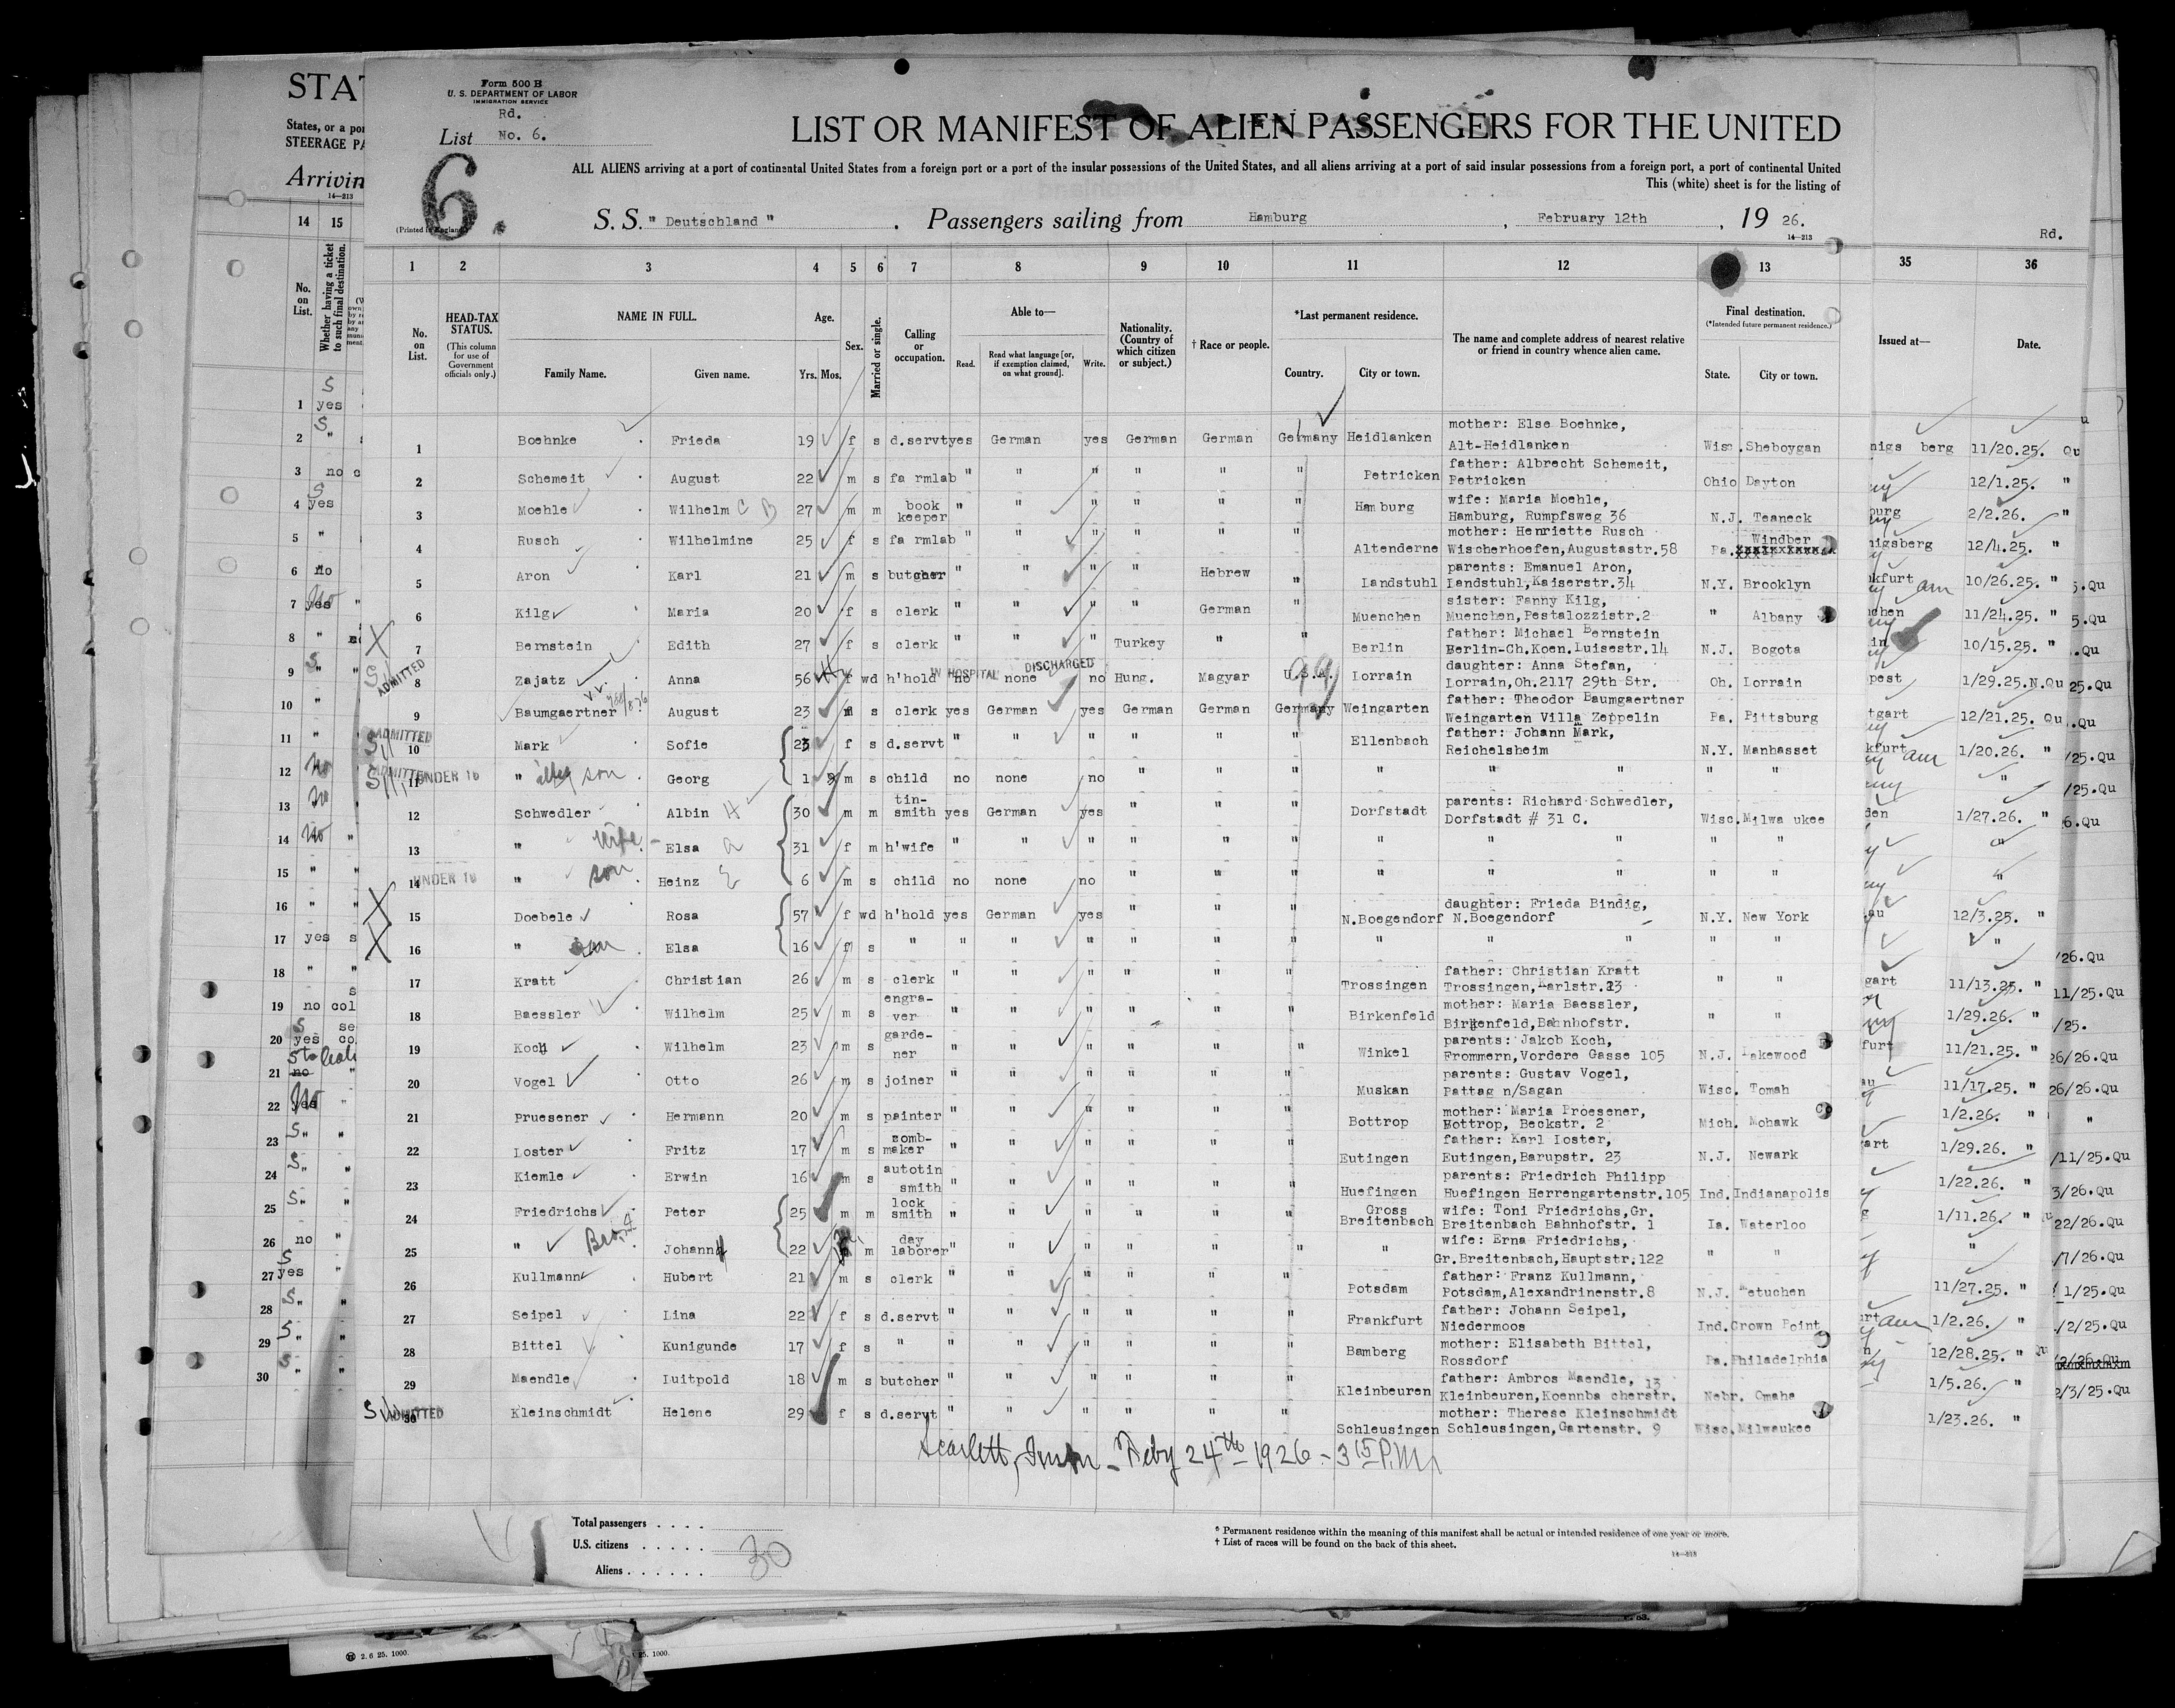 Form 500 B
U. S. DEPARTMENT OF LABOR
IMMIGRATION SERVICE
Rd.
List No. 6.
6.
(Printed in England)
LIST OR MANIFEST OF ALIEN PASSENGERS FOR THE UNITED
ALL ALIENS arriving at a port of continental United States from a foreign port or a port of the insular possessions of the United States, and all aliens arriving at a port of said insular possessions from a foreign port, a port of continental United
This (white) sheet is for the listing of
S. S. " Deutschland " . Passengers sailing from Hamburg , February 12th , 19 26.
14—213
1 2 3 4 5 6 7 8 9 10 11 12 13
No. on List. HEAD-TAX STATUS. (This column for use of Government officials only.) NAME IN FULL. Family Name. Given name. Age. Yrs. Mos. Sex. Married or single. Calling or occupation. Able to— Read. Read what language [or, if exemption claimed, on what ground]. Write. Nationality. (Country of which citizen or subject.) † Race or people. *Last permanent residence. Country. City or town. The name and complete address of nearest relative or friend in country whence alien came. Final destination. (*Intended future permanent residence.) State. City or town.
1 Boehnke Frieda 19 f s d.servt yes German yes German German Germany Heidlanken mother: Else Boehnke, Alt-Heidlanken Wisc. Sheboygan
2 Schemeit August 22 m s fa rmlab " " " " " " Petricken father: Albrecht Schemeit, Petricken Ohio Dayton
3 Moehle Wilhelm C B 27 m m book keeper " " " " " " Hamburg wife: Maria Moehle, Hamburg, Rumpfsweg 36 N.J. Teaneck
4 Rusch Wilhelmine 25 f s fa rmlab " " " " " " Altenderne mother: Henriette Rusch Wischerhoefen,Augustastr.58 Pa. Windber
5 Aron Karl 21 m s butcher " " " " Hebrew " Landstuhl parents: Emanuel Aron, Landstuhl,Kaiserstr.34 N.Y. Brooklyn
6 Kilg Maria 20 f s clerk " " " " German " Muenchen sister: Fanny Kilg, Muenchen,Pestalozzistr.2 " Albany
X 7 Bernstein Edith 27 f s clerk " " " Turkey " " Berlin father: Michael Bernstein Berlin-Ch.Koen.Luisestr.14 N.J. Bogota
ADMITTED 8 Zajatz Anna 56 f wd h'hold no IN HOSPITAL none DISCHARGED no Hung. Magyar U.S.A. Lorrain daughter: Anna Stefan, Lorrain,Oh.2117 29th Str. Oh. Lorrain
9 Baumgaertner August 23 m s clerk yes German yes German German Germany Weingarten father: Theodor Baumgaertner Weingarten Villa Zeppelin Pa. Pittsburg
ADMITTED 10 Mark Sofie 23 f s d.servt " " " " " " Ellenbach father: Johann Mark, Reichelsheim N.Y. Manhasset
ADMITTED UNDER 16 11 " son Georg 1 m s child no none no " " " " " " " "
12 Schwedler Albin H 30 m m tin- smith yes German yes " " " Dorfstadt parents: Richard Schwedler, Dorfstadt # 31 C. Wisc. Milwa ukee
13 " wife - Elsa a 31 f m h'wife " " " " " " " " " " "
UNDER 16 14 " son Heinz E 6 m s child no none no " " " " " " " "
X 15 Doebele Rosa 57 f wd h'hold yes German yes " " " N.Boegendorf daughter: Frieda Bindig, N.Boegendorf N.Y. New York
X 16 " Elsa 16 f s " " " " " " " " " " " "
17 Kratt Christian 26 m s clerk " " " " " " Trossingen father: Christian Kratt Trossingen,Karlstr.23 " "
18 Baessler Wilhelm 25 m s engra- ver " " " " " " Birkenfeld mother: Maria Baessler, Birkenfeld,Bahnhofstr. " "
19 Koch Wilhelm 23 m s garde- ner " " " " " " Winkel parents: Jakob Koch, Frommern,Vordere Gasse 105 N.J. Lakewood
20 Vogel Otto 26 m s joiner " " " " " " Muskan parents: Gustav Vogel, Pattag n/Sagan Wisc. Tomah
21 Pruesener Hermann 20 m s painter " " " " " " Bottrop mother: Maria Proesener, Bottrop, Beckstr. 2 Mich. Mohawk
22 Loster Fritz 17 m s zomb- maker " " " " " " Eutingen father: Karl Loster, Eutingen,Barupstr. 23 N.J. Newark
23 Kiemle Erwin 16 m s autotin smith " " " " " " Huefingen parents: Friedrich Philipp Huefingen Herrengartenstr.105 Ind. Indianapolis
24 Friedrichs Peter 25 m m lock smith " " " " " " Gross Breitenbach wife: Toni Friedrichs,Gr. Breitenbach Bahnhofstr. 1 Ia. Waterloo
25 " Johann 22 m m day laborer " " " " " " " wife: Erna Friedrichs, Gr.Breitenbach,Hauptstr.122 " "
26 Kullmann Hubert 21 m s clerk " " " " " " Potsdam father: Franz Kullmann, Potsdam,Alexandrinenstr.8 N.J. Metuchen
27 Seipel Lina 22 f s d.servt " " " " " " Frankfurt father: Johann Seipel, Niedermoos Ind. Crown Point
28 Bittel Kunigunde 17 f s " " " " " " " Bamberg mother: Elisabeth Bittel, Rossdorf Pa. Philadelphia
29 Maendle Luitpold 18 m s butcher " " " " " " Kleinbeuren father: Ambros Maendle, 13 Kleinbeuren,Koennba cherstr. Nebr. Omaha
ADMITTED 30 Kleinschmidt Helene 29 f s d.servt " " " " " " Schleusingen mother: Therese Kleinschmidt Schleusingen,Gartenstr. 9 Wisc. Milwaukee
Scarlett, Feby 24th 1926 - 3 15 P.M.
Total passengers . . . .
U.S. citizens . . . . .
Aliens . . . . . . 30
* Permanent residence within the meaning of this manifest shall be actual or intended residence of one year or more.
† List of races will be found on the back of this sheet.
14—213
STAT
States, or a por
STEERAGE PA
Arrivin
14—213
14 15
No. on List. Whether having a ticket to such final destination.
1 yes
2 "
3 no
4 yes
5 "
6 no
7 yes
8 "
9 "
10 "
11 "
12 no
13 no
14 no
15 "
16 "
17 yes
18 "
19 no col
20 yes
21 no
22 yes
23 "
24 "
25 "
26 no
27 yes
28 "
29 "
30 "
Rd.
35 36
Issued at— Date.
nigs berg 11/20.25. Qu
12/1.25. "
burg 2/2.26. "
nigsberg 12/4.25. "
nkfurt am 10/26.25. "
nchen 11/24.25. "
in 10/15.25. "
pest 1/29.25.N.Qu
tgart 12/21.25. Qu
kfurt am 1/20.26. "
"
den 1/27.26. "
"
"
au 12/3.25. "
"
gart 11/13.25. "
1/29.26. "
furt 11/21.25. "
au 11/17.25. "
1/2.26. "
art 1/29.26. "
1/22.26. "
g 1/11.26. "
"
11/27.25. "
urt am 1/2.26. "
n 12/28.25. "
1/5.26. "
1/23.26. "
2. 6 25. 1000.
25. 1000.